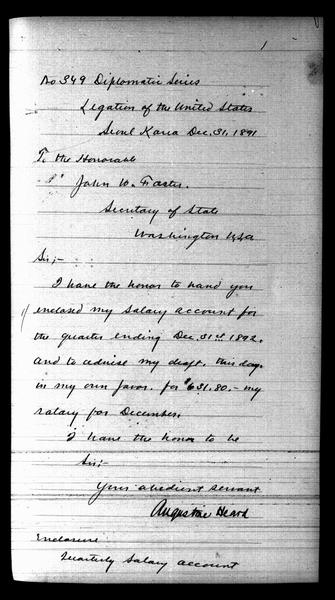 1
No 349 Diplomatic Series
Legation of the United States
Seoul Korea Dec. 31, 1891
To the Honorable
John W. Foster.
Secretary of State
Washington USA
Sir;-
I have the honor to hand you
enclosed my salary account for
the quarter ending Dec. 31st 1892.
and to advise my draft, this day.
in my own favor. for $631.80.- my
salary for December.
I have the honor to be
Sir;-
Your obedient servant
Augustine Heard
Enclosure
Quarterly Salary account